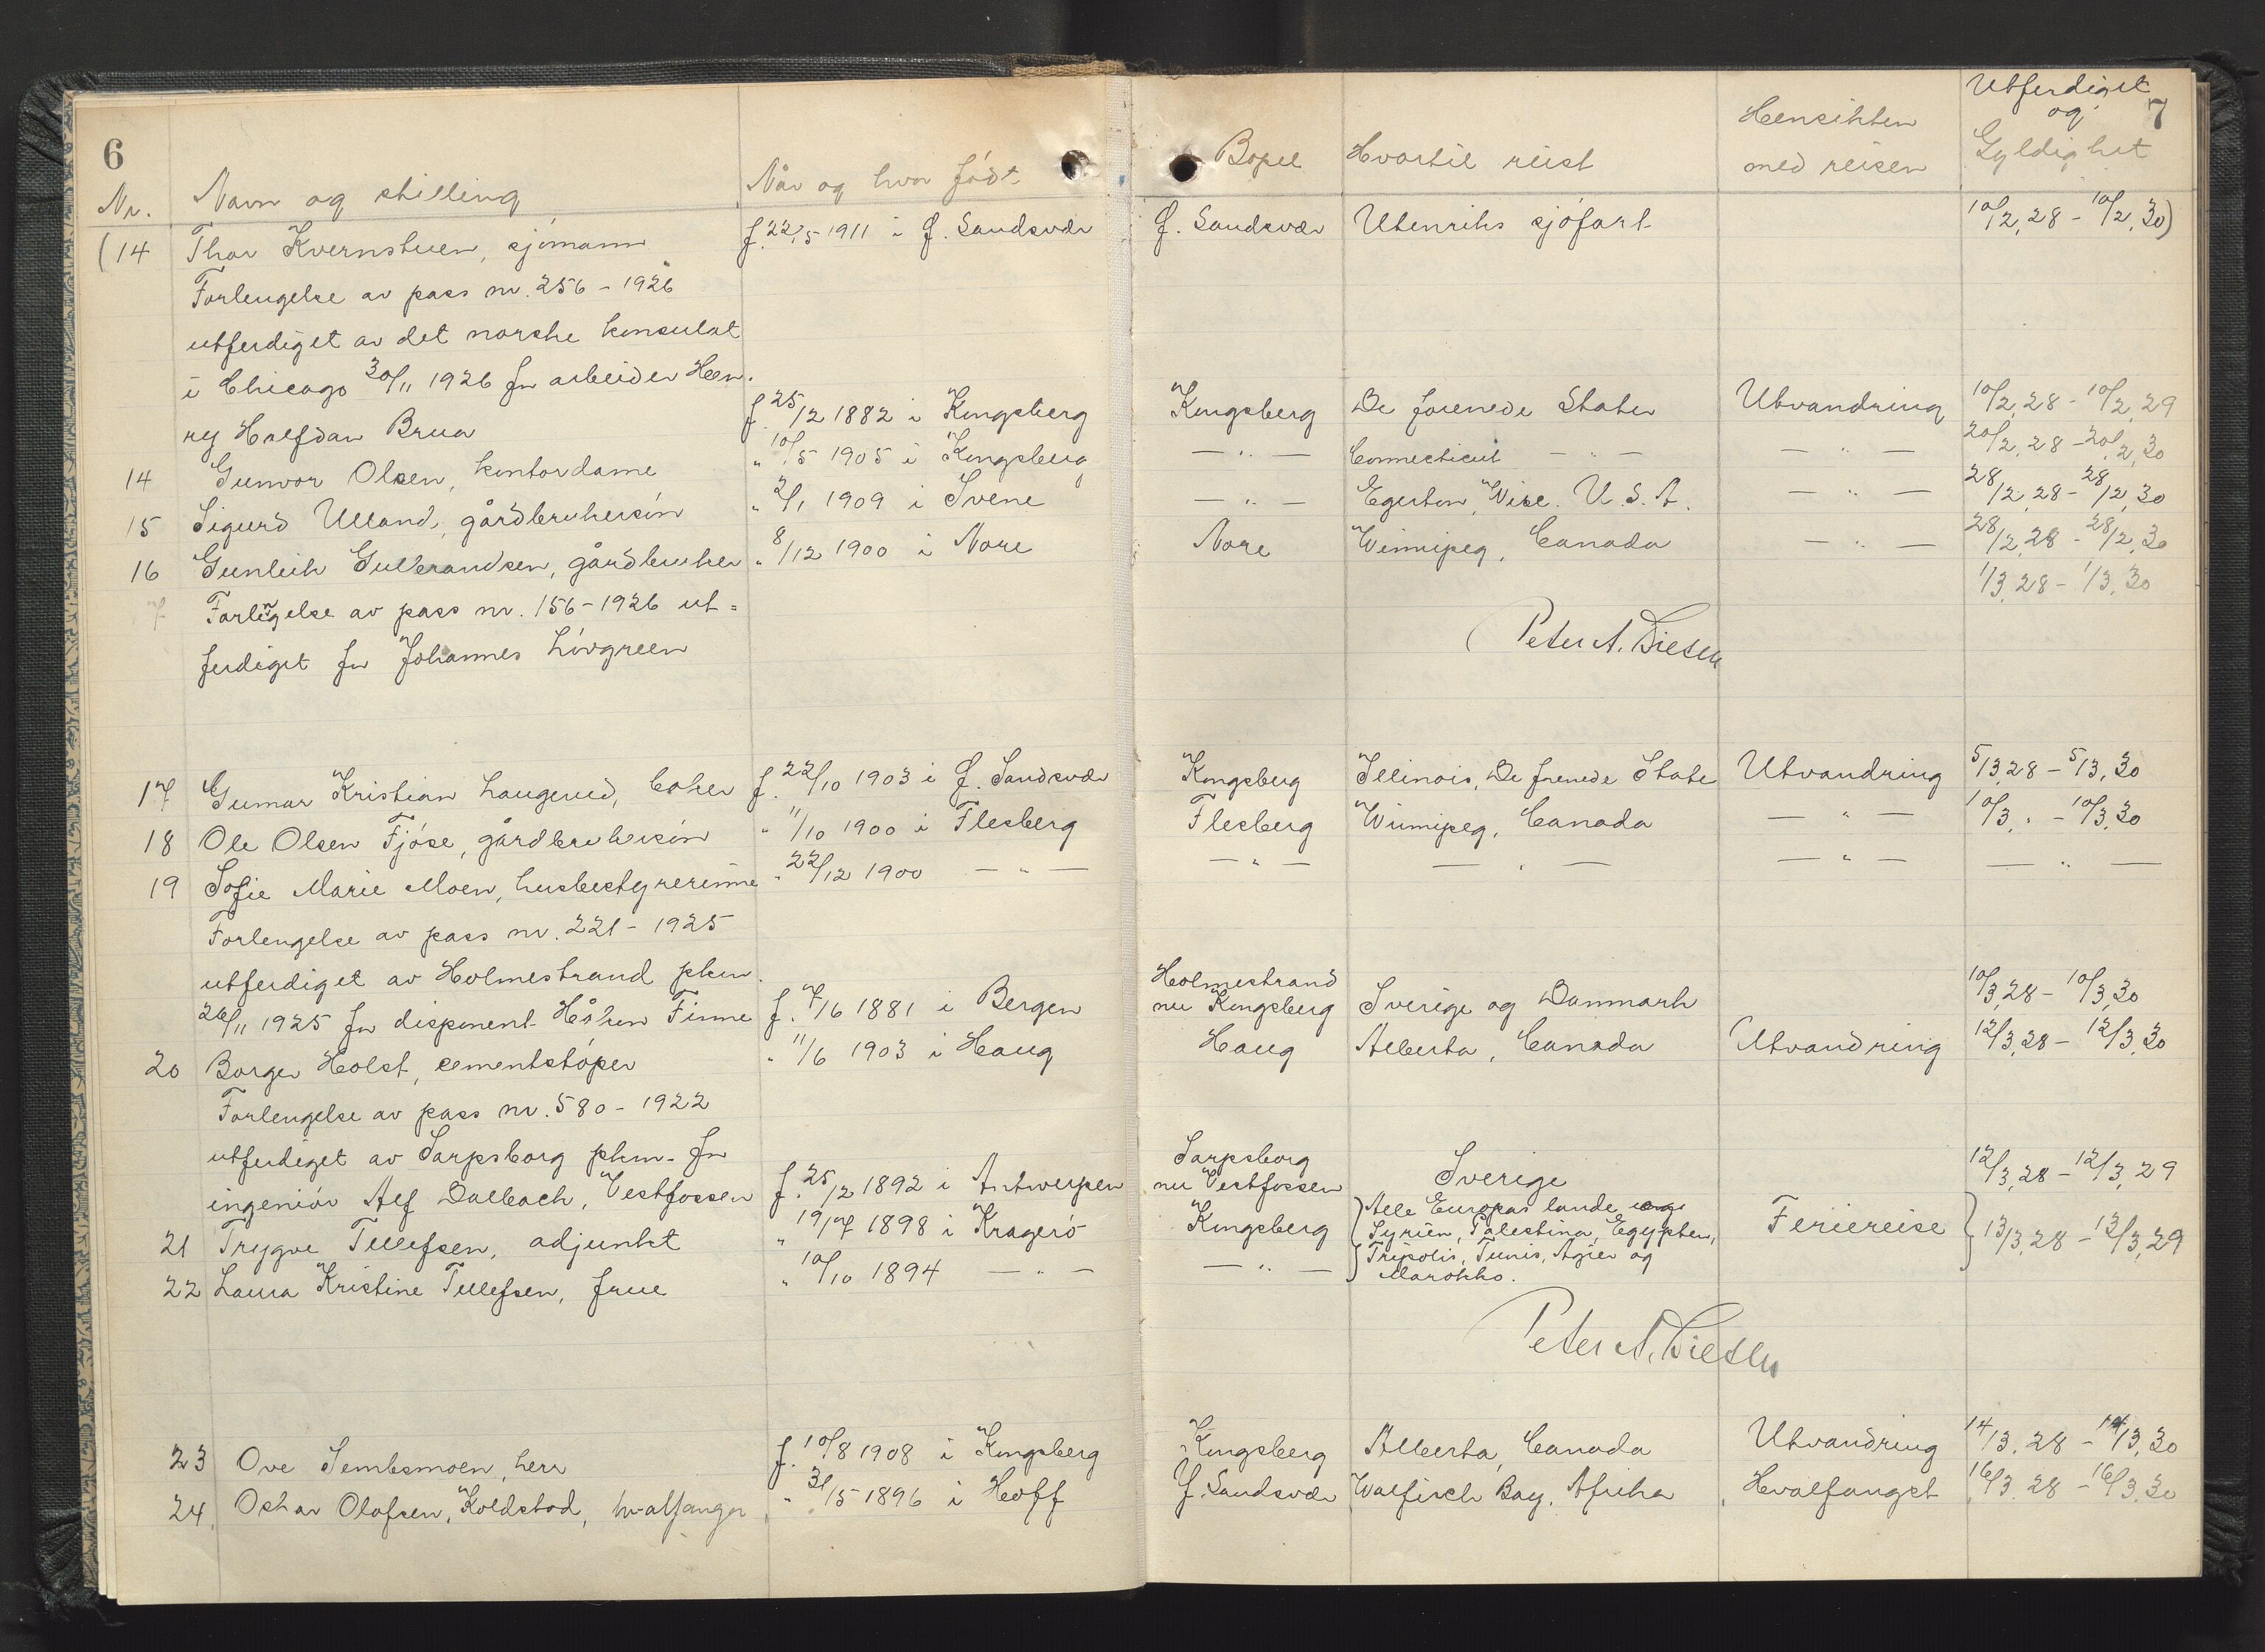 6
Nr. Navn og stilling Når og hvor født
(14 Thor Kvernstuen, sjømann f. 22/5 1911 i Y. Sandsvær
Forlengelse av pass nr. 256 - 1926
utferdiget av det norske konsulat
i Chicago 30/11 1926 for arbeider Hen-
ry Halfdan Brua f. 25/12 1882 i Kongsberg
14 Gunvor Olsen, kontordame " 10/5 1905 i Kongsberg
15 Sigurd Ulland, gårdbrukersøn " 2/1 1909 i Svene
16 Gunleik Gulbrandsen, gårdbruker " 8/12 1900 i Nore
7 Forlengelse av pass nr. 156 - 1926 ut=
ferdiget for Johannes Løvgreen
17 Gunnar Kristian Laugerud, baker f. 22/10 1903 i Y. Sandsvær
18 Ole Olsen Fjøse, gårdbrukersøn " 11/10 1900 i Flesberg
19 Sofie Marie Moen, husbestyrerinne " 22/12 1900 — " —
Forlengelse av pass nr. 221 - 1925
utferdiget av Holmestrand pkm.
26/11 1925 for disponent Håkon Finne f. 7/6 1881 i Bergen
20 Borger Holst, cementstøper " 11/6 1903 i Haug
Forlengelse av pass nr. 580 - 1922
utferdiget av Sarpsborg pkm. for
ingeniør Alf Dalbach, Vestfossen f. 25/12 1892 i Antwerpen
21 Trygve Tellefsen, adjunkt " 19/7 1898 i Kragerø
22 Laura Kristine Tellefsen, frue " 10/10 1894 — " —
23 Ove Sembsmoen, herr f. 10/8 1908 i Kongsberg
24 Oskar Olafsen, Koldstad, hvalfanger " 31/5 1896 i Hoff
7
Bopel Hvortil reist Hensikten med reisen Utferdiget og Gyldighet
Y. Sandsvær Utenriks sjøfart 10/2,28 - 10/2,30)
Kongsberg De forenede Stater Utvandring 10/2,28 - 10/2,29
— " — Connecticut — " — — " — 20/2,28 - 20/2,30
— " — Egerton, Wise. U.S.A. — " — 28/2,28 - 28/2,30
Nore Winnipeg, Canada — " — 28/2,28 - 28/2,30
1/3,28 - 1/3,30
Peter A. Diesen
Kongsberg Illinois, De forenede State Utvandring 5/3,28 - 5/3,30
Flesberg Winnipeg, Canada — " — 10/3 " - 10/3,30
— " — — " — — " — — " —
Holmestrand
nu Kongsberg Sverige og Danmark 10/3,28 - 10/3,30
Haug Alberta, Canada Utvandring 12/3,28 - 12/3,30
Sarpsborg
nu Vestfossen Sverige 12/3,28 - 12/3,29
Kongsberg Alle Europas lande
Syrien, Palestina, Egypten, Feriereise 13/3,28 - 13/3,29
— " — Tripolis, Tunis, Agier og
Marokko.
Peter A. Diesen
Kongsberg Alberta, Canada Utvandring 14/3,28 - 14/3,30
Y. Sandsvær Walfisch Bay, Afrika Hvalfangst 16/3 28 - 16/3,30